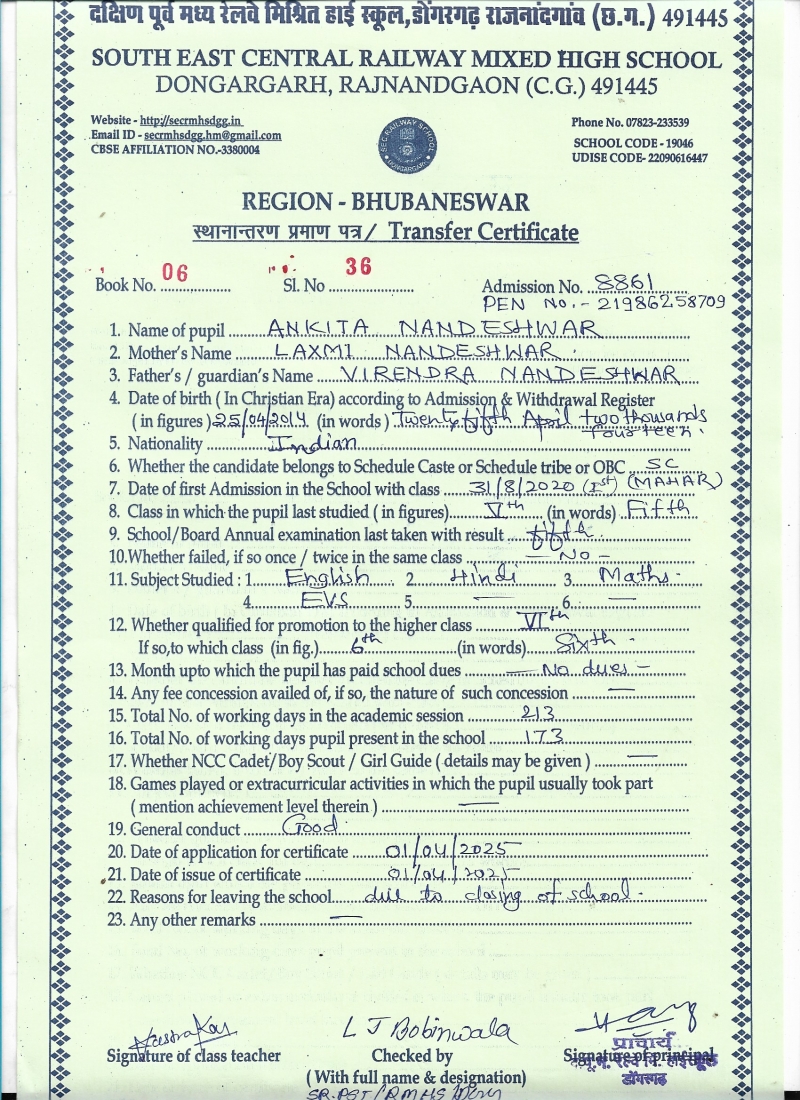 दक्षिण पूर्व मध्य रेलवे मिश्रित हाई स्कूल,डोंगरगढ़ राजनांदगांव (छ.ग.) 491445
SOUTH EAST CENTRAL RAILWAY MIXED HIGH SCHOOL
DONGARGARH, RAJNANDGAON (C.G.) 491445
Website - http://secrmhsdgg.in
Email ID - secrmhsdgg.hm@gmail.com
CBSE AFFILIATION NO.-3380004
SEC RAILWAY SCHOOL
DONGARGARH
Phone No. 07823-233539
SCHOOL CODE - 19046
UDISE CODE- 22090616447
REGION - BHUBANESWAR
स्थानान्तरण प्रमाण पत्र / Transfer Certificate
Book No. 06 Sl. No 36 Admission No. 8861
PEN No.- 21986258709
1. Name of pupil ANKITA NANDESHWAR
2. Mother's Name LAXMI NANDESHWAR.
3. Father's / guardian's Name VIRENDRA NANDESHWAR
4. Date of birth ( In Christian Era) according to Admission & Withdrawal Register
(in figures) 25/04/2014 (in words) Twenty fifth April two thousands
fourteen.
5. Nationality Indian
6. Whether the candidate belongs to Schedule Caste or Schedule tribe or OBC SC
7. Date of first Admission in the School with class 31/8/2020 (Ist) (MAHAR)
8. Class in which the pupil last studied ( in figures) Vth (in words) Fifth
9. School/Board Annual examination last taken with result fifth
10.Whether failed, if so once / twice in the same class — No —
11. Subject Studied : 1. English 2. Hindi 3. Maths.
4. EVS 5. — 6. —
12. Whether qualified for promotion to the higher class VIth
If so,to which class (in fig.) 6th (in words) Sixth.
13. Month upto which the pupil has paid school dues — No dues —
14. Any fee concession availed of, if so, the nature of such concession —
15. Total No. of working days in the academic session 213
16. Total No. of working days pupil present in the school 173
17. Whether NCC Cadet/Boy Scout / Girl Guide ( details may be given ) —
18. Games played or extracurricular activities in which the pupil usually took part
( mention achievement level therein ) —
19. General conduct Good.
20. Date of application for certificate 01/04/2025
21. Date of issue of certificate 01/04/2025
22. Reasons for leaving the school due to closing of school.
23. Any other remarks —
L J Bobinwala
Signature of class teacher Checked by Signature of principal
प्राचार्य
डोंगरगढ़
( With full name & designation)